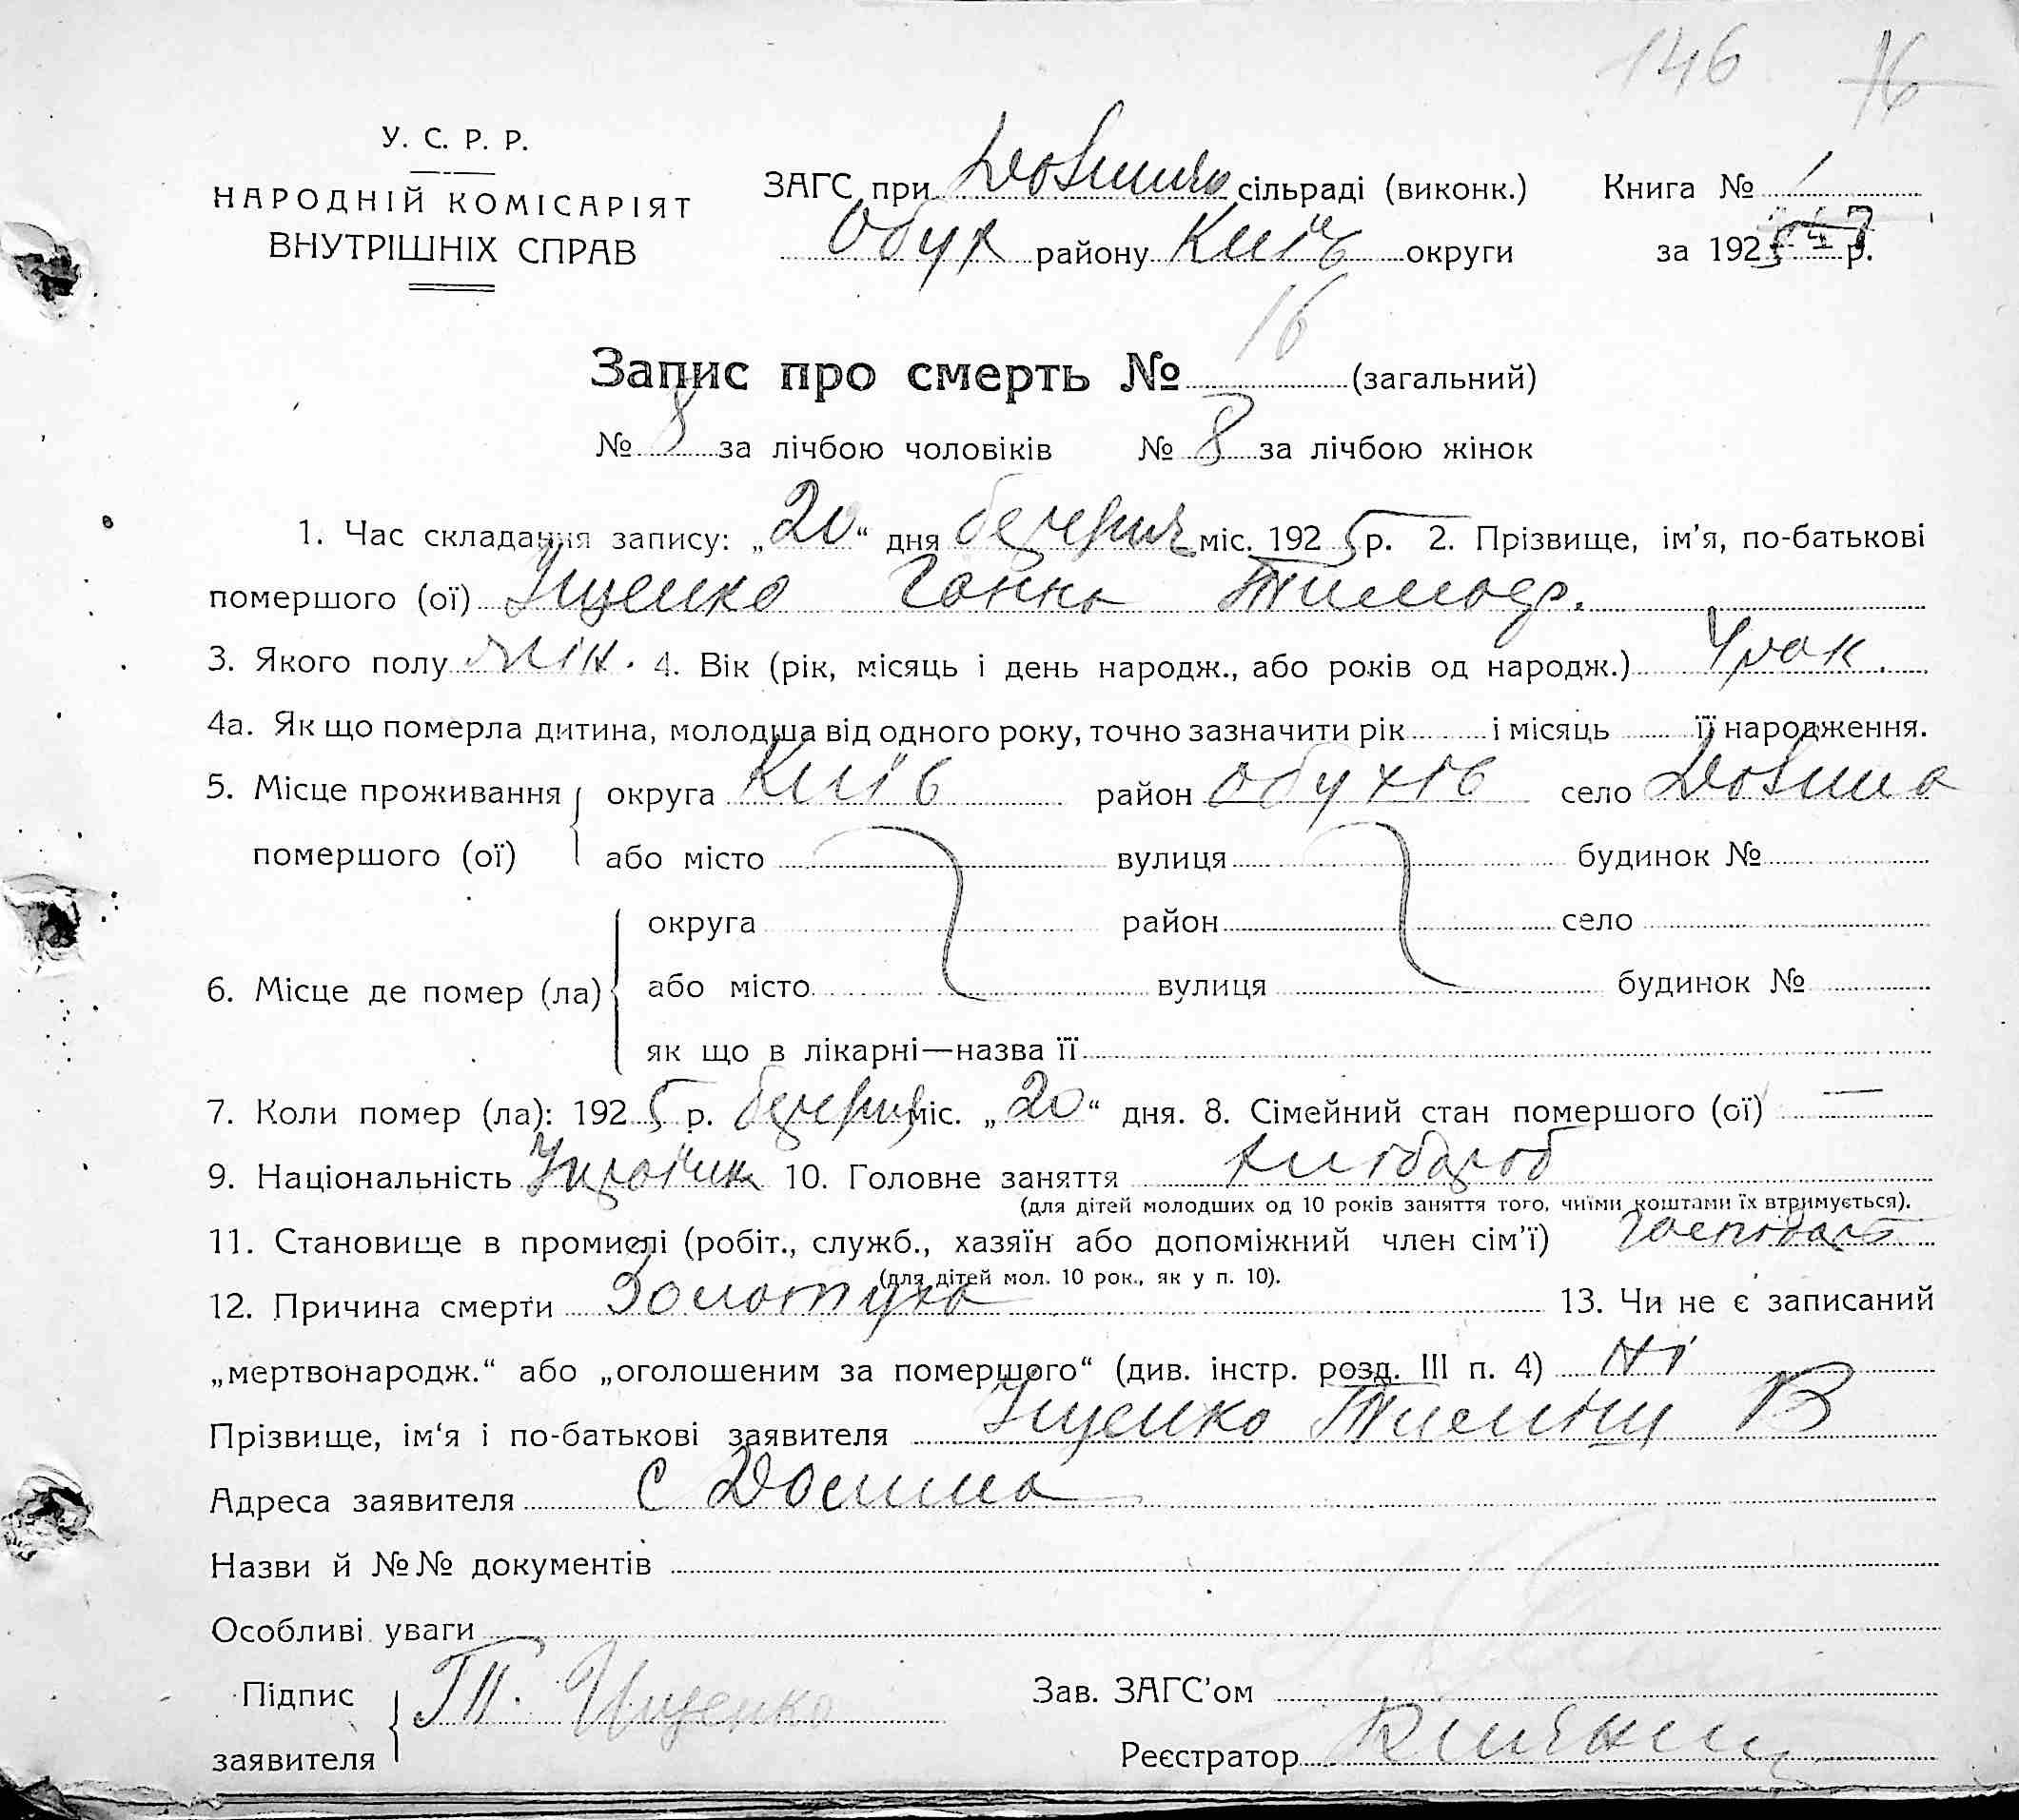 146 16
У. С. Р. Р.
НАРОДНІЙ КОМІСАРІЯТ
ВНУТРІШНІХ СПРАВ
ЗАГС при сільраді (виконк.) Книга № 1
Обух району Київ округи за 1925 р.
Запис про смерть № 16 (загальний)
№ 8 за лічбою чоловіків № 8 за лічбою жінок
1. Час складання запису: „20“ дня міс. 1925 р. 2. Прізвище, ім’я, по-батькові
помершого (ої) Іщенко Ганна Тимоф.
3. Якого полу жін. 4. Вік (рік, місяць і день народж., або років од народж.) рок.
4а. Як що померла дитина, молодша від одного року, точно зазначити рік і місяць її народження.
5. Місце проживання округа Київ район Обухів село Долина
помершого (ої) або місто вулиця будинок №
округа район село
6. Місце де помер (ла) або місто вулиця будинок №
як що в лікарні—назва її
7. Коли помер (ла): 1925 р. міс. „20“ дня. 8. Сімейний стан помершого (ої) —
9. Національність 10. Головне заняття хлібороб
(для дітей молодших од 10 років заняття того, чиїми коштами їх втримується).
11. Становище в промислі (робіт., служб., хазяїн або допоміжний член сім’ї)
(для дітей мол. 10 рок., як у п. 10).
12. Причина смерти Золотуха 13. Чи не є записаний
„мертвонародж.“ або „оголошеним за помершого“ (див. інстр. розд. III п. 4) ні
Прізвище, ім‘я і по-батькові заявителя Іщенко В
Адреса заявителя с Долина
Назви й №№ документів
Особливі уваги
Підпис
заявителя Т. Іщенко
Зав. ЗАГС’ом
Реєстратор